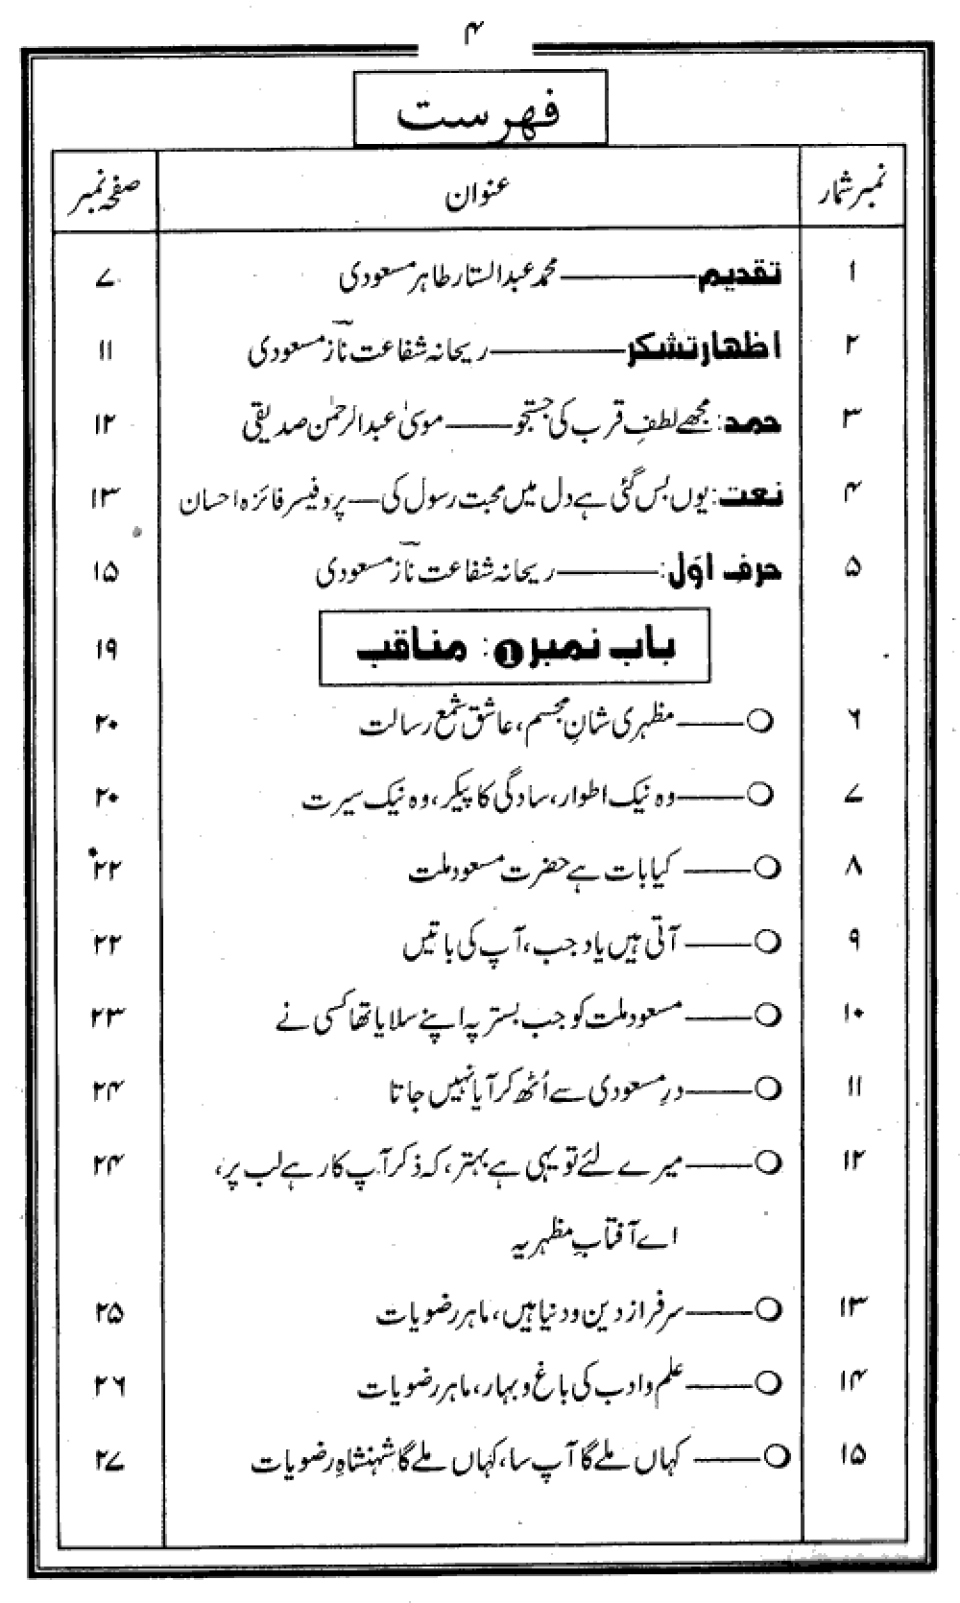 ۴
فہرست
نمبر شمار عنوان صفحہ نمبر
۱ تقدیم ——— محمد عبدالستار طاہر مسعودی ۷
۲ اظہار تشکر ——— ریحانہ شفاعت نازؔ مسعودی ۱۱
۳ حمد: مجھے لطفِ قرب کی جستجو ——— موسیٰ عبدالرحمٰن صدیقی ۱۲
۴ نعت: یوں بس گئی ہے دل میں محبت رسول کی — پروفیسر فائزہ احسان ۱۳
۵ حرفِ اوّل: ——— ریحانہ شفاعت نازؔ مسعودی ۱۵
باب نمبر 1: مناقب ۱۹
۶ ○——— مظہری شانِ مجسم، عاشق شمع رسالت ۲۰
۷ ○——— وہ نیک اطوار، سادگی کا پیکر، وہ نیک سیرت ۲۰
۸ ○——— کیا بات ہے حضرت مسعود ملت ۲۲
۹ ○——— آتی ہیں یاد جب، آپ کی باتیں ۲۲
۱۰ ○——— مسعود ملت کو جب بستر پہ اپنے سلایا تھا کسی نے ۲۳
۱۱ ○——— درِ مسعودی سے اُٹھ کر آیا نہیں جاتا ۲۴
۱۲ ○——— میرے لئے تو یہی ہے بہتر، کہ ذکر آپ کا رہے لب پر، ۲۴
اے آفتابِ مظہریہ
۱۳ ○——— سرفراز دین و دنیا ہیں، ماہر رضویات ۲۵
۱۴ ○——— علم و ادب کی باغ و بہار، ماہر رضویات ۲۶
۱۵ ○——— کہاں ملے گا آپ سا، کہاں ملے گا شہنشاہِ رضویات ۲۷